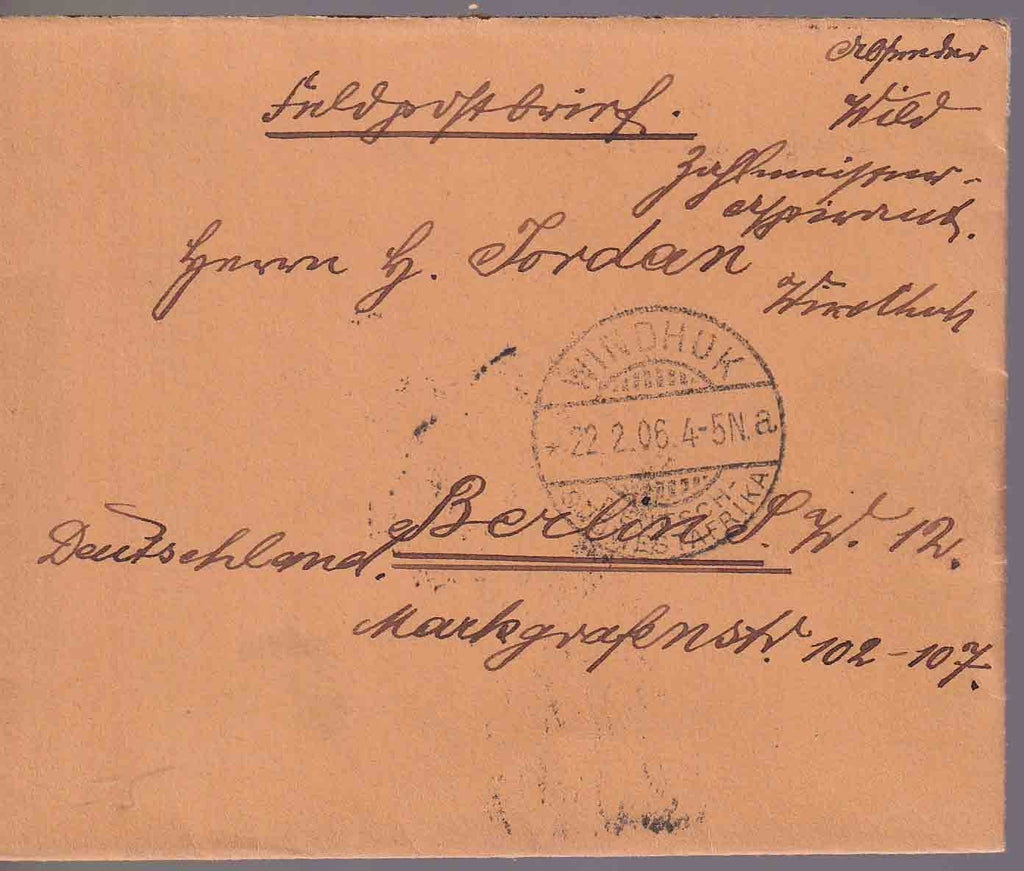 Absender
Feldpostbrief.
Wild
Zahlmeister-
aspirant.
Herrn H. Jordan
Windhuk
WINDHUK
* 22.2.06.4-5N. a
DEUTSCH-
SÜDWESTAFRIKA
Berlin S. W. 12.
Deutschland.
Markgrafenstr. 102-107.